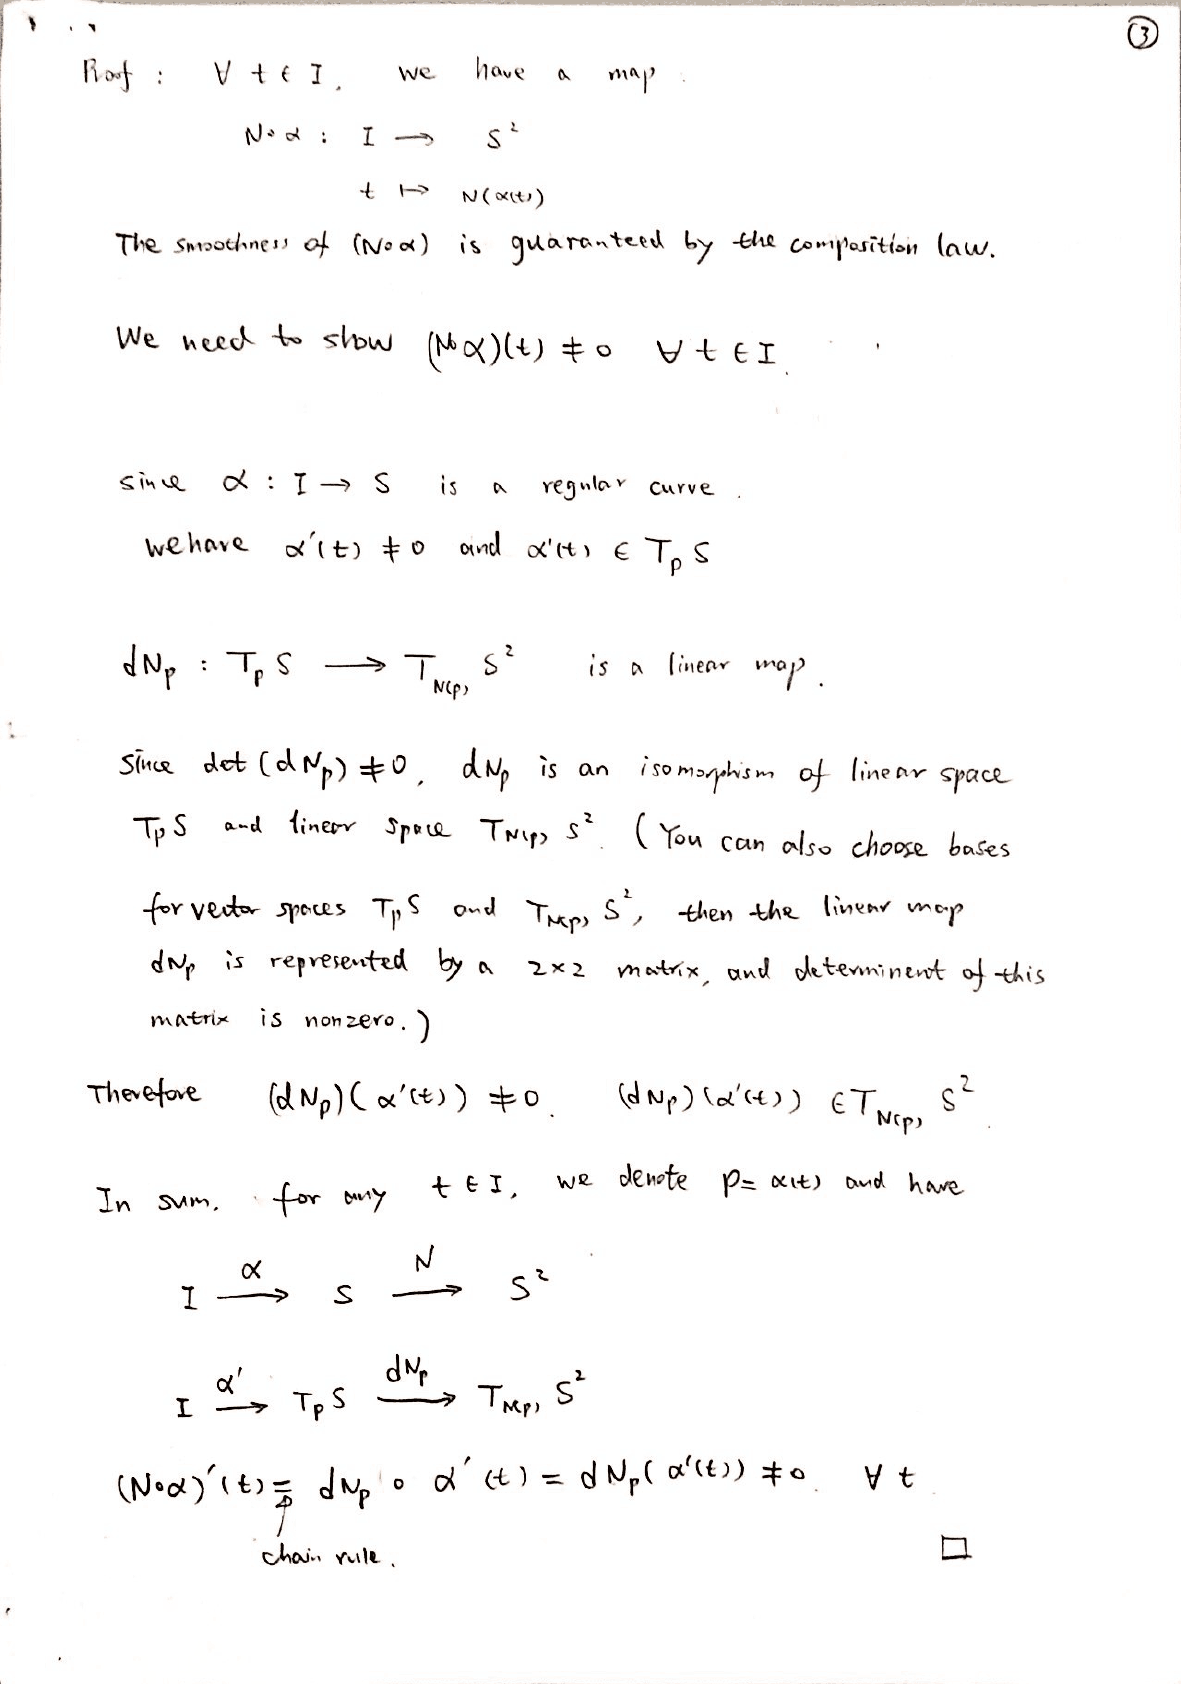 ③
Proof : ∀ t ∈ I, we have a map.
N∘α : I → S²
t ↦ N(α(t))
The smoothness of (N∘α) is guaranteed by the composition law.
We need to show (N∘α)(t) ≠ 0 ∀ t ∈ I.
since α : I → S is a regular curve.
we have α'(t) ≠ 0 and α'(t) ∈ T_p S
dN_p : T_p S → T_{N(p)} S² is a linear map.
Since det (dN_p) ≠ 0, dN_p is an isomorphism of linear space
T_p S and linear space T_{N(p)} S². (You can also choose bases
for vector spaces T_p S and T_{N(p)} S², then the linear map
dN_p is represented by a 2×2 matrix, and determinent of this
matrix is nonzero.)
Therefore (dN_p)(α'(t)) ≠ 0. (dN_p)(α'(t)) ∈ T_{N(p)} S².
In sum, for any t ∈ I, we denote p = α(t) and have
I →^α S →^N S²
I →^{α'} T_p S →^{dN_p} T_{N(p)} S²
(N∘α)'(t) = dN_p ∘ α'(t) = dN_p(α'(t)) ≠ 0. ∀ t
chain rule. □